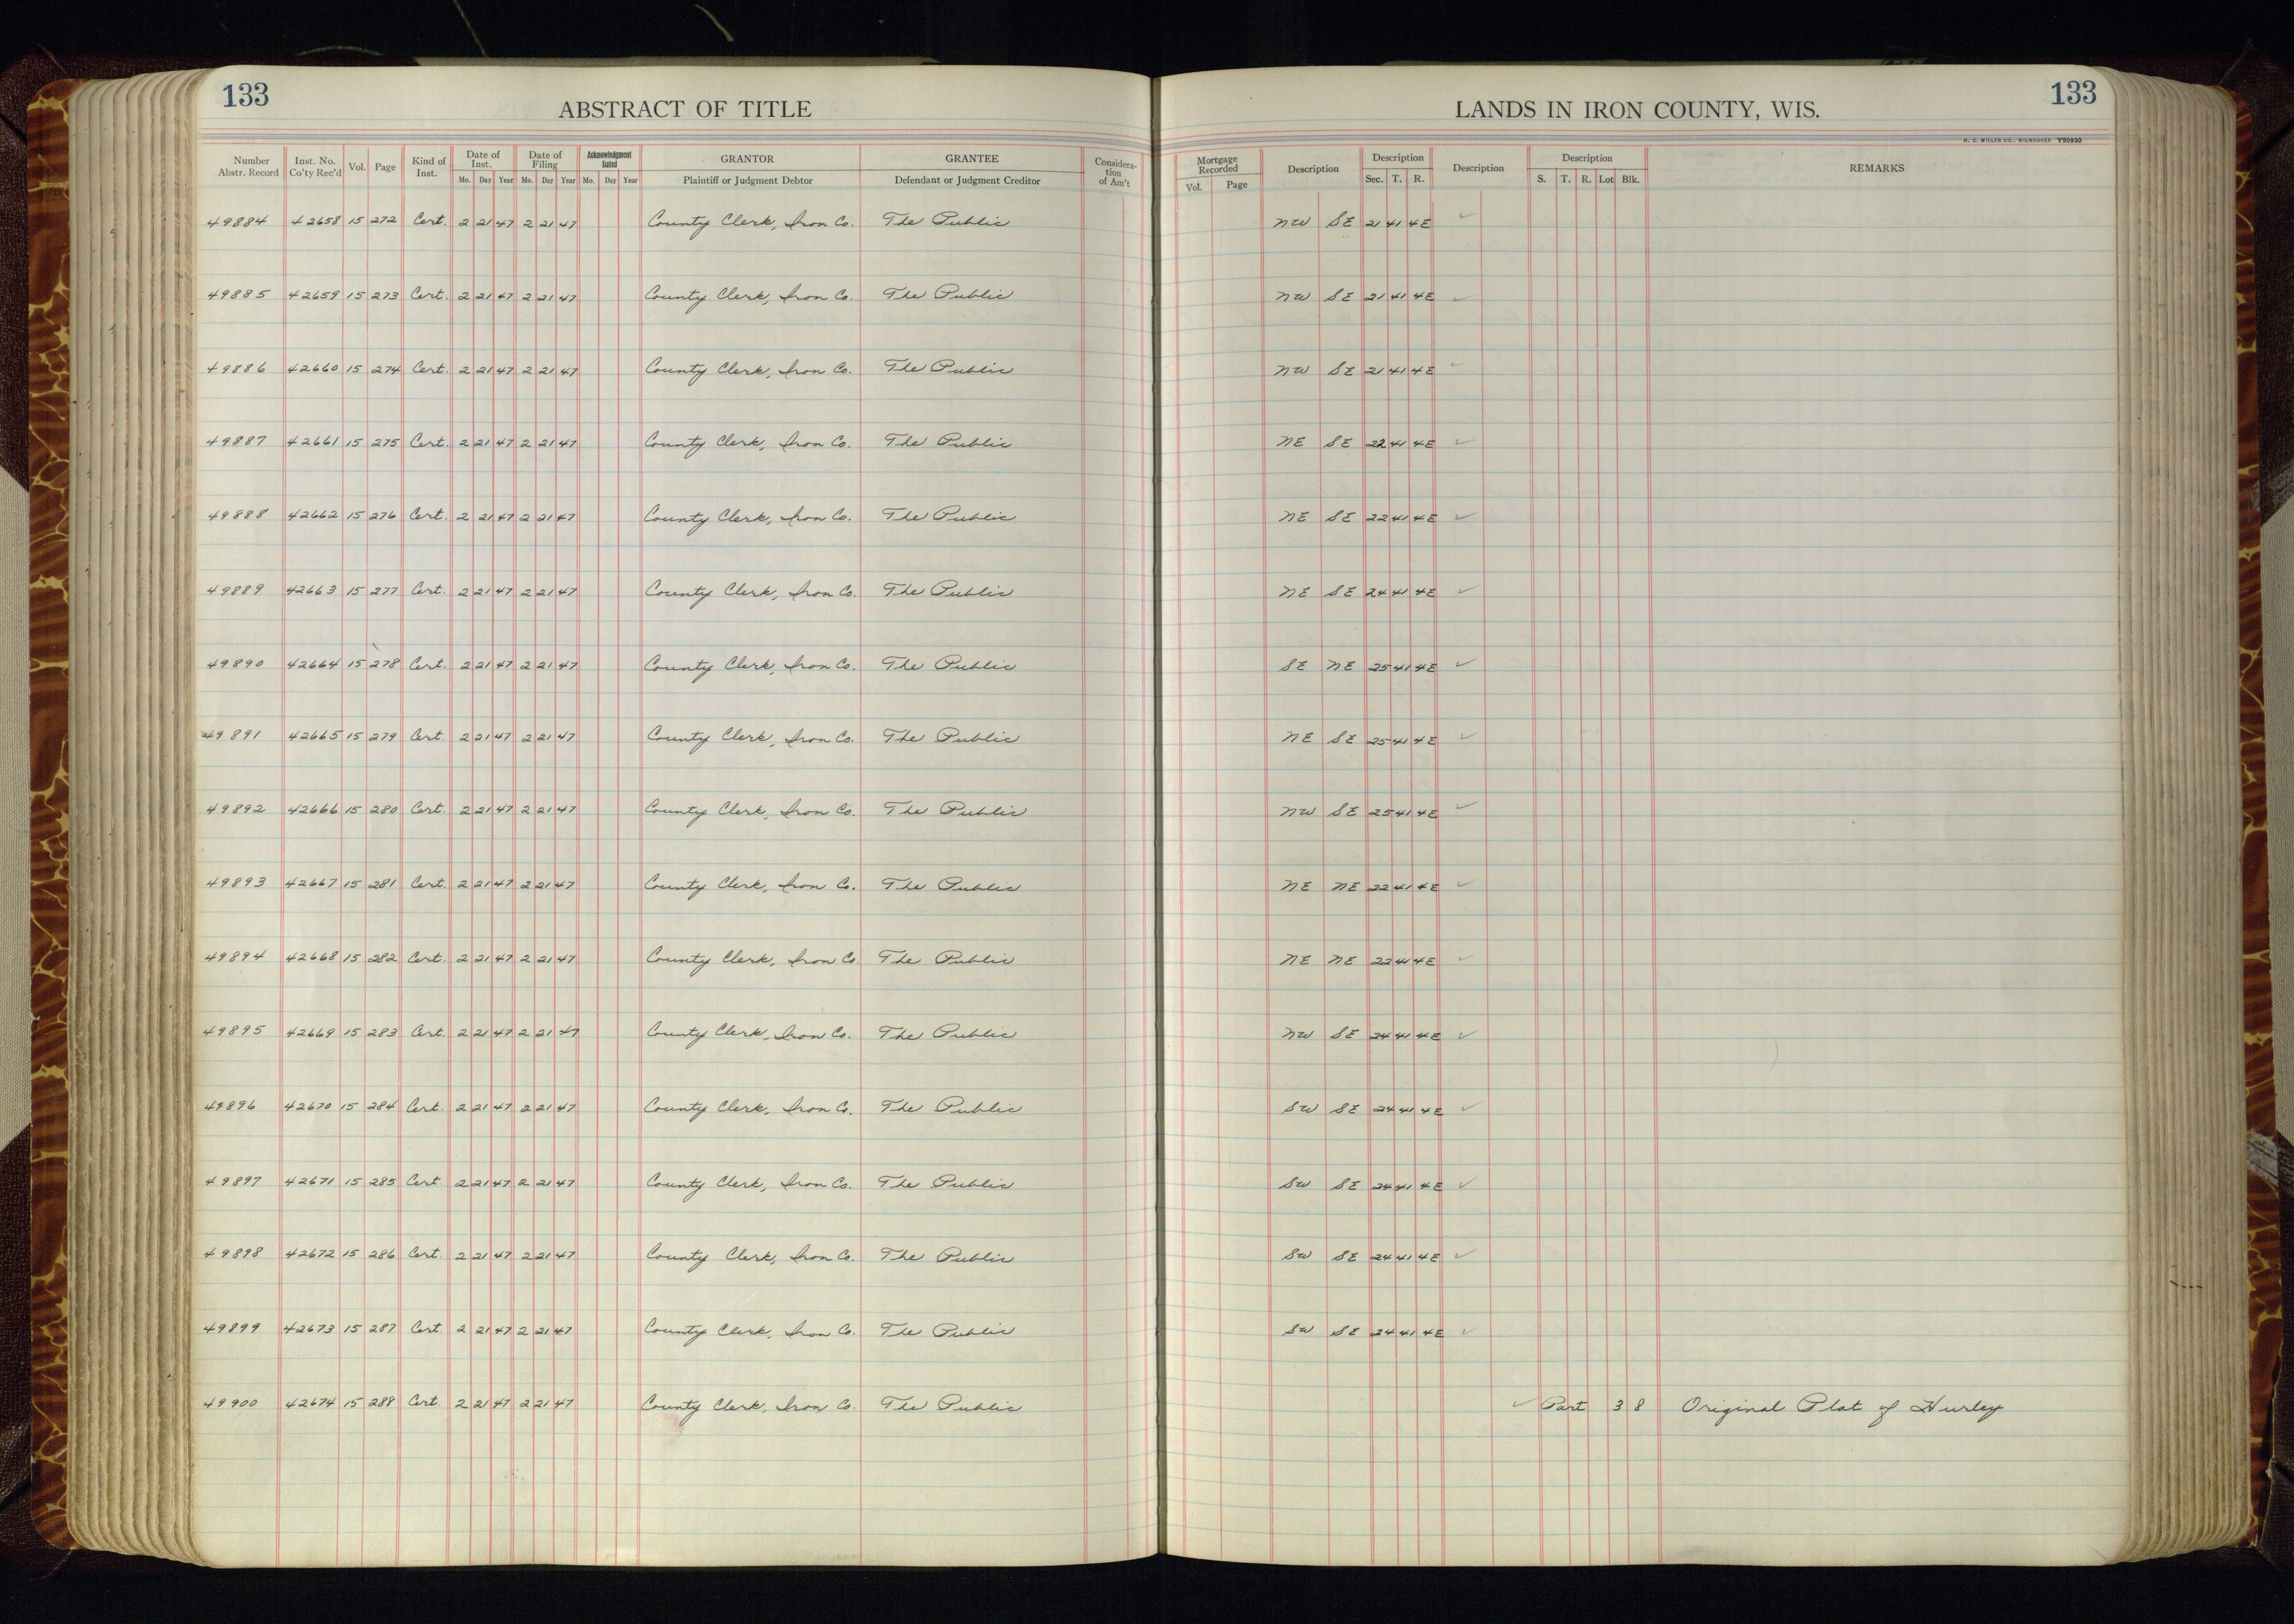 133 133
ABSTRACT OF TITLE LANDS IN IRON COUNTY, WIS.
H. C. MILLER CO., MILWAUKEE Y50930
Number Abstr. Record Inst. No. Co'ty Rec'd Vol. Page Kind of Inst. Date of Inst. Mo. Day Year Date of Filing Mo. Day Year Acknowledgment Dated Mo. Day Year GRANTOR Plaintiff or Judgment Debtor GRANTEE Defendant or Judgment Creditor Considera-tion of Am't Mortgage Recorded Vol. Page Description Description Sec. T. R. Description Description S. T. R. Lot Blk. REMARKS
49884 42658 15 272 Cert. 2 21 47 2 21 47 County Clerk, Iron Co. The Public NW SE 21 41 4E ✓
49885 42659 15 273 Cert. 2 21 47 2 21 47 County Clerk, Iron Co. The Public NW SE 21 41 4E ✓
49886 42660 15 274 Cert. 2 21 47 2 21 47 County Clerk, Iron Co. The Public NW SE 21 41 4E ✓
49887 42661 15 275 Cert. 2 21 47 2 21 47 County Clerk, Iron Co. The Public NE SE 22 41 4E ✓
49888 42662 15 276 Cert. 2 21 47 2 21 47 County Clerk, Iron Co. The Public NE SE 22 41 4E ✓
49889 42663 15 277 Cert. 2 21 47 2 21 47 County Clerk, Iron Co. The Public NE SE 24 41 4E ✓
49890 42664 15 278 Cert. 2 21 47 2 21 47 County Clerk, Iron Co. The Public SE NE 25 41 4E ✓
49891 42665 15 279 Cert. 2 21 47 2 21 47 County Clerk, Iron Co. The Public NE SE 25 41 4E ✓
49892 42666 15 280 Cert. 2 21 47 2 21 47 County Clerk, Iron Co. The Public NW SE 25 41 4E ✓
49893 42667 15 281 Cert. 2 21 47 2 21 47 County Clerk, Iron Co. The Public NE NE 22 41 4E ✓
49894 42668 15 282 Cert. 2 21 47 2 21 47 County Clerk, Iron Co. The Public NE NE 22 41 4E ✓
49895 42669 15 283 Cert. 2 21 47 2 21 47 County Clerk, Iron Co. The Public NW SE 24 41 4E ✓
49896 42670 15 284 Cert. 2 21 47 2 21 47 County Clerk, Iron Co. The Public SW SE 24 41 4E ✓
49897 42671 15 285 Cert. 2 21 47 2 21 47 County Clerk, Iron Co. The Public SW SE 24 41 4E ✓
49898 42672 15 286 Cert. 2 21 47 2 21 47 County Clerk, Iron Co. The Public SW SE 24 41 4E ✓
49899 42673 15 287 Cert. 2 21 47 2 21 47 County Clerk, Iron Co. The Public SW SE 24 41 4E ✓
49900 42674 15 288 Cert. 2 21 47 2 21 47 County Clerk, Iron Co. The Public ✓ Part 3 8 Original Plat of Hurley